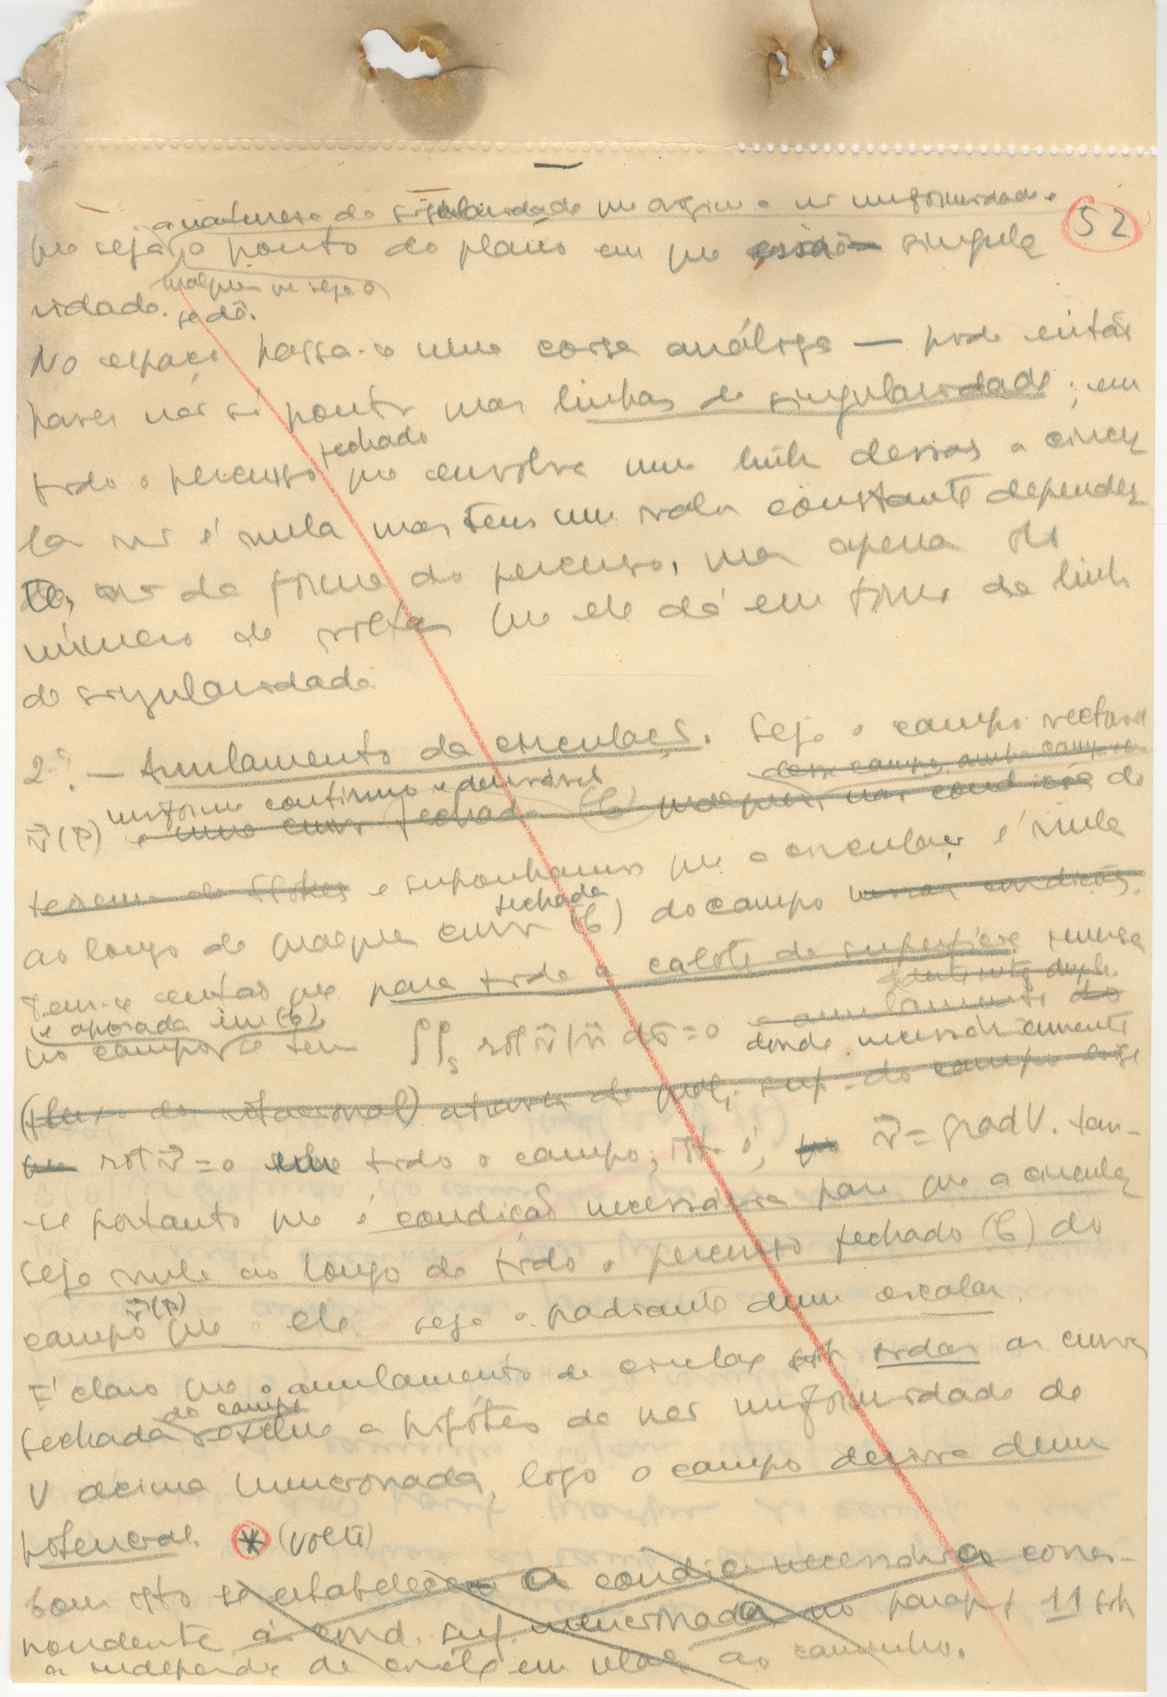 a natureza da singularidade na origem e a não uniformidade
52
que seja o ponto do plano em que singula
qualquer que seja o
ridade se dê.
No espaço passa-se uma coisa análoga — pode então
haver não só pontos mas linhas de singularidade; em
fechado
todo o percurso que envolva uma linha dessas a circula
ção não é nula mas tem um valor constante dependen
te, não da forma do percurso, mas apenas do
número de voltas que ele dá em torno da linha
de singularidade.
2º. — Anulamento da circulação. Seja o campo vectorial
uniforme contínuo e derivável
desse campo
v(P) e uma curva fechada (C) qualquer nas condições do
teorema de Stokes e suponhamos que a circulação é nula
fechada
ao longo de qualquer curva (C) do campo nessas condições.
Tem-se então que para toda a calote de superfície imersa
e apoiada em (C)
no campo se tem ∬s rot v|n dσ = 0 e anulamento do
donde necessariamente
(fluxo do rotacional) através de qualq. sup. do campo
que rot v = 0 em todo o campo, isto é, v = grad V. Tem-
-se portanto que é condição necessária para que a circulação
seja nula ao longo de todo o percurso fechado (C) do
v(P)
campo que ele seja o gradiente dum escalar.
É claro que o anulamento da circulação sobre todas as curvas
do campo
fechadas exclue a hipótese de não uniformidade de
V acima mencionada, logo o campo deriva dum
potencial. * (volte)
Com isto se estabelece a condição necessária corres-
pondente à cond. suf. mencionada no parag. 11 sob
a independência de em relação ao caminho.